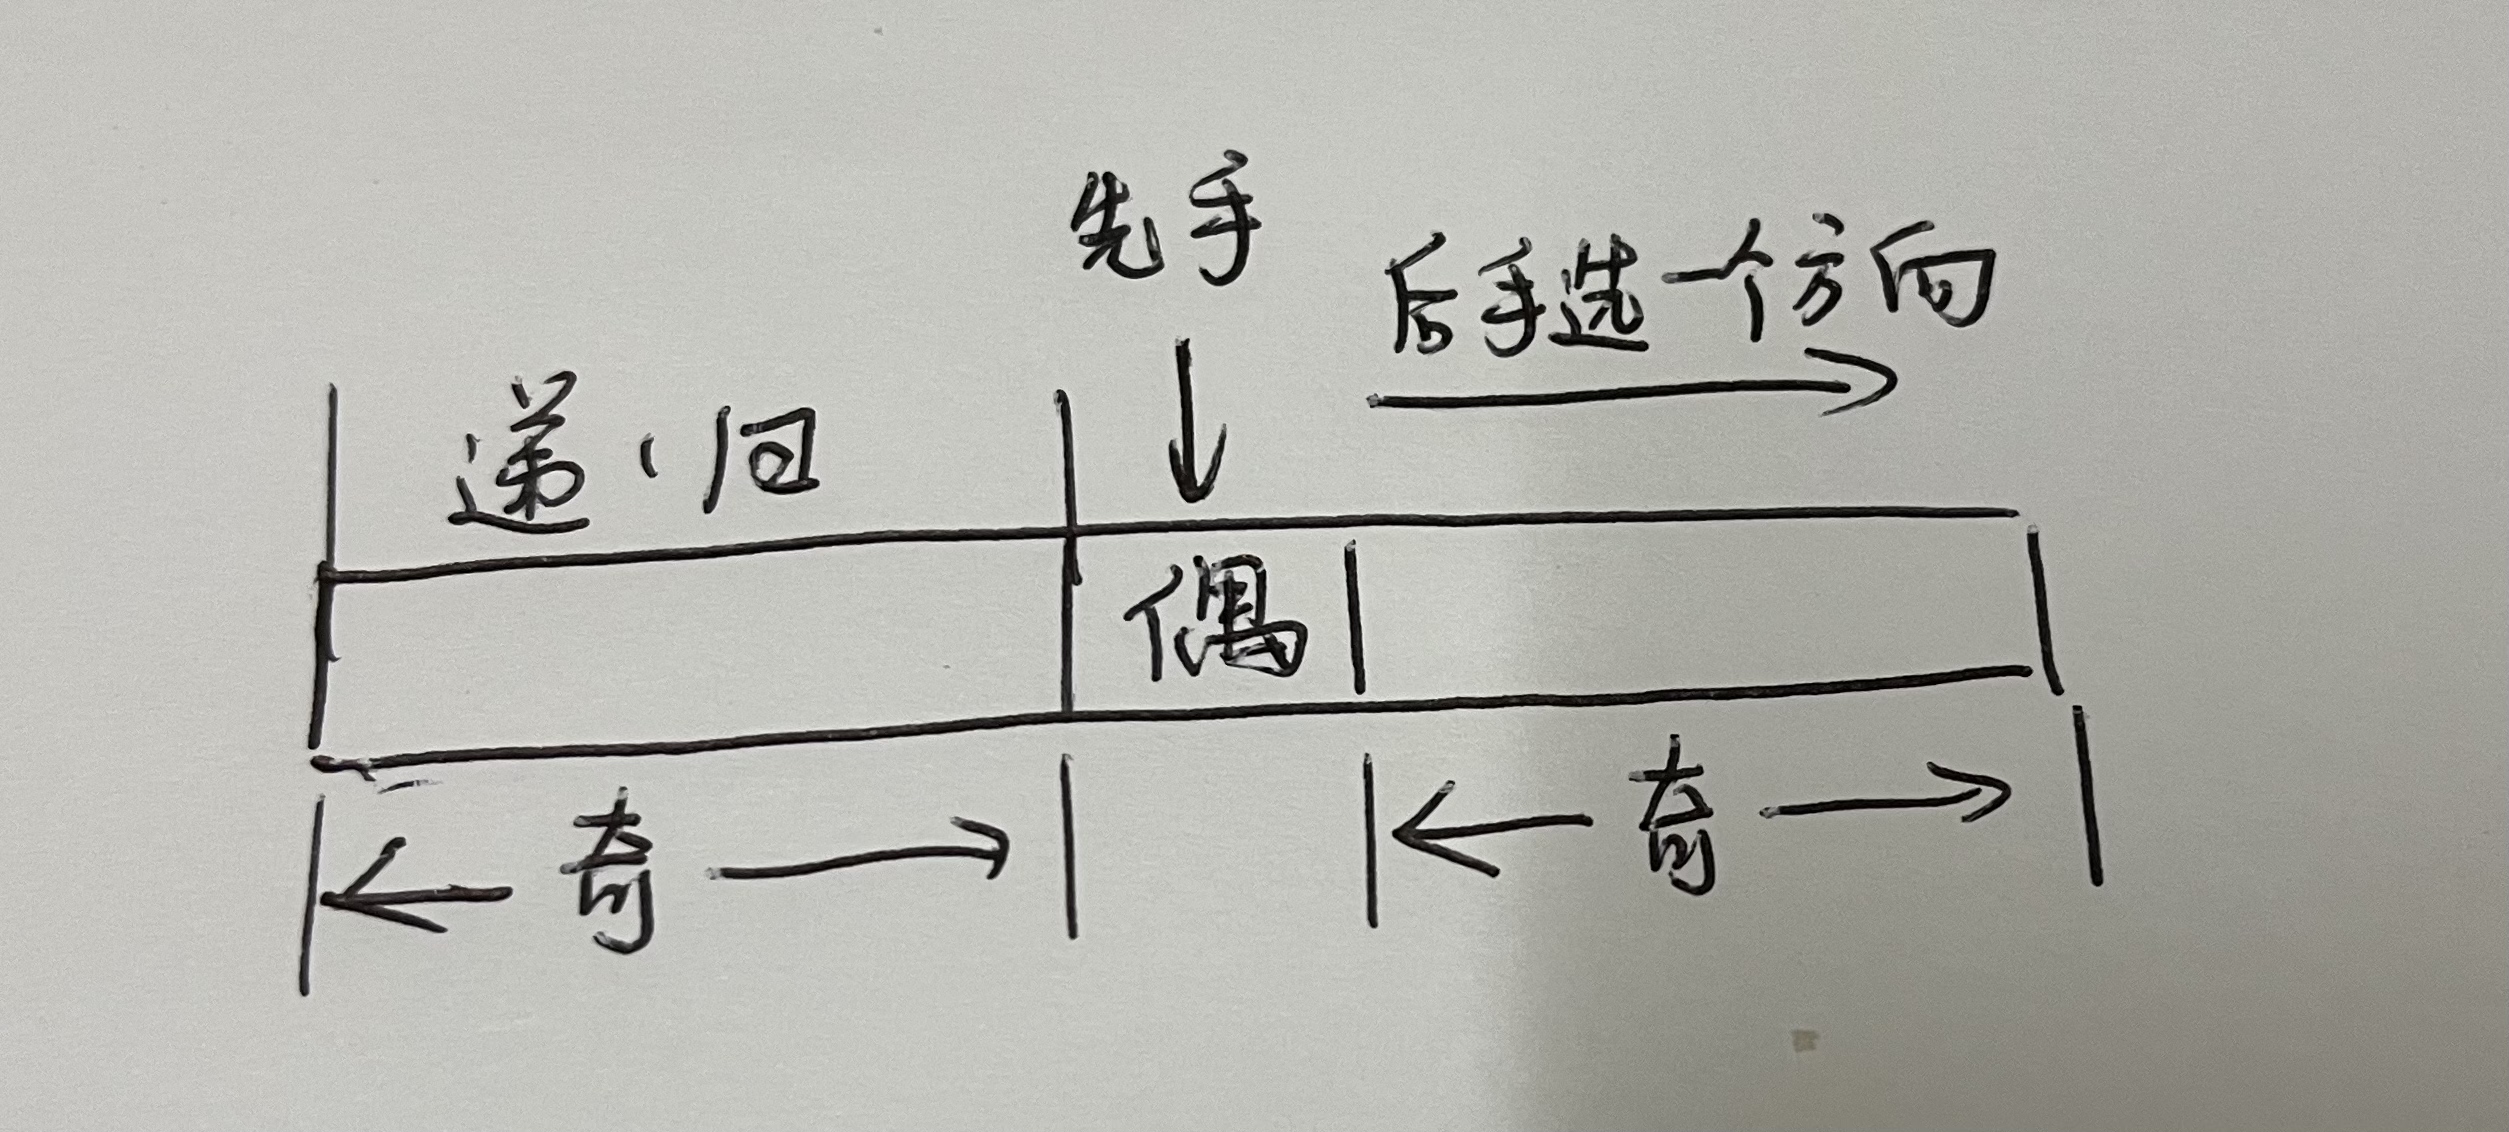 先手
后手选一个方向
递归
偶
奇
奇